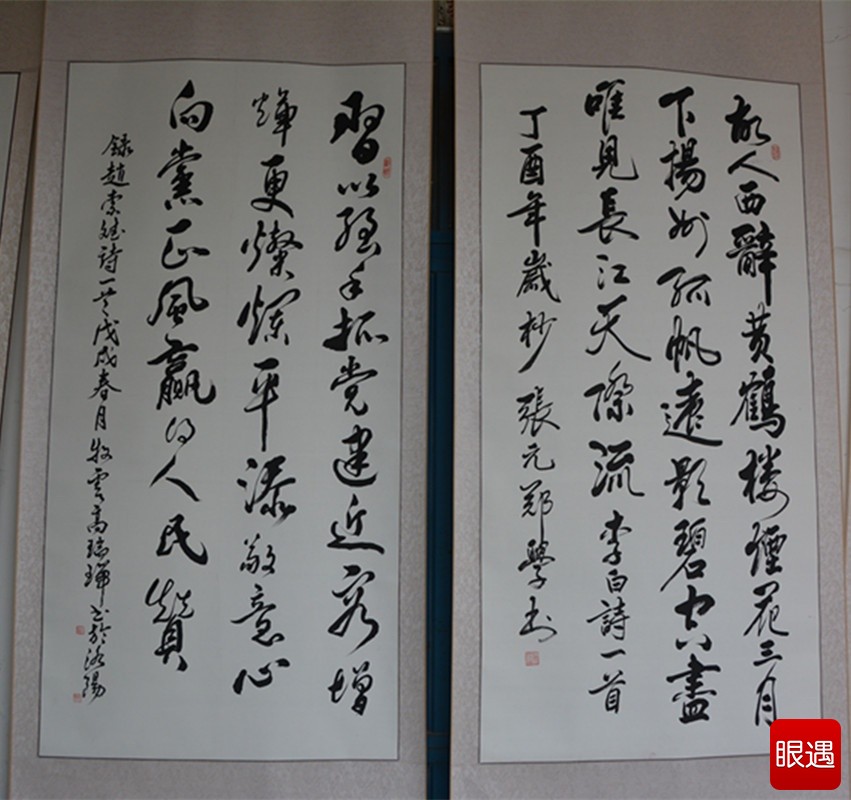 故人西辭黄鶴楼煙花三月
下揚州孤帆遠影碧空盡
唯見長江天際流李白詩一首
丁酉年歲杪張元郑學书
習以强手抓党建近增
煇更燦爛平添敬意心
向黨正風赢得人民贊
錄趙詩一首戊戌春月牧雲高瑞书於洛陽
眼遇